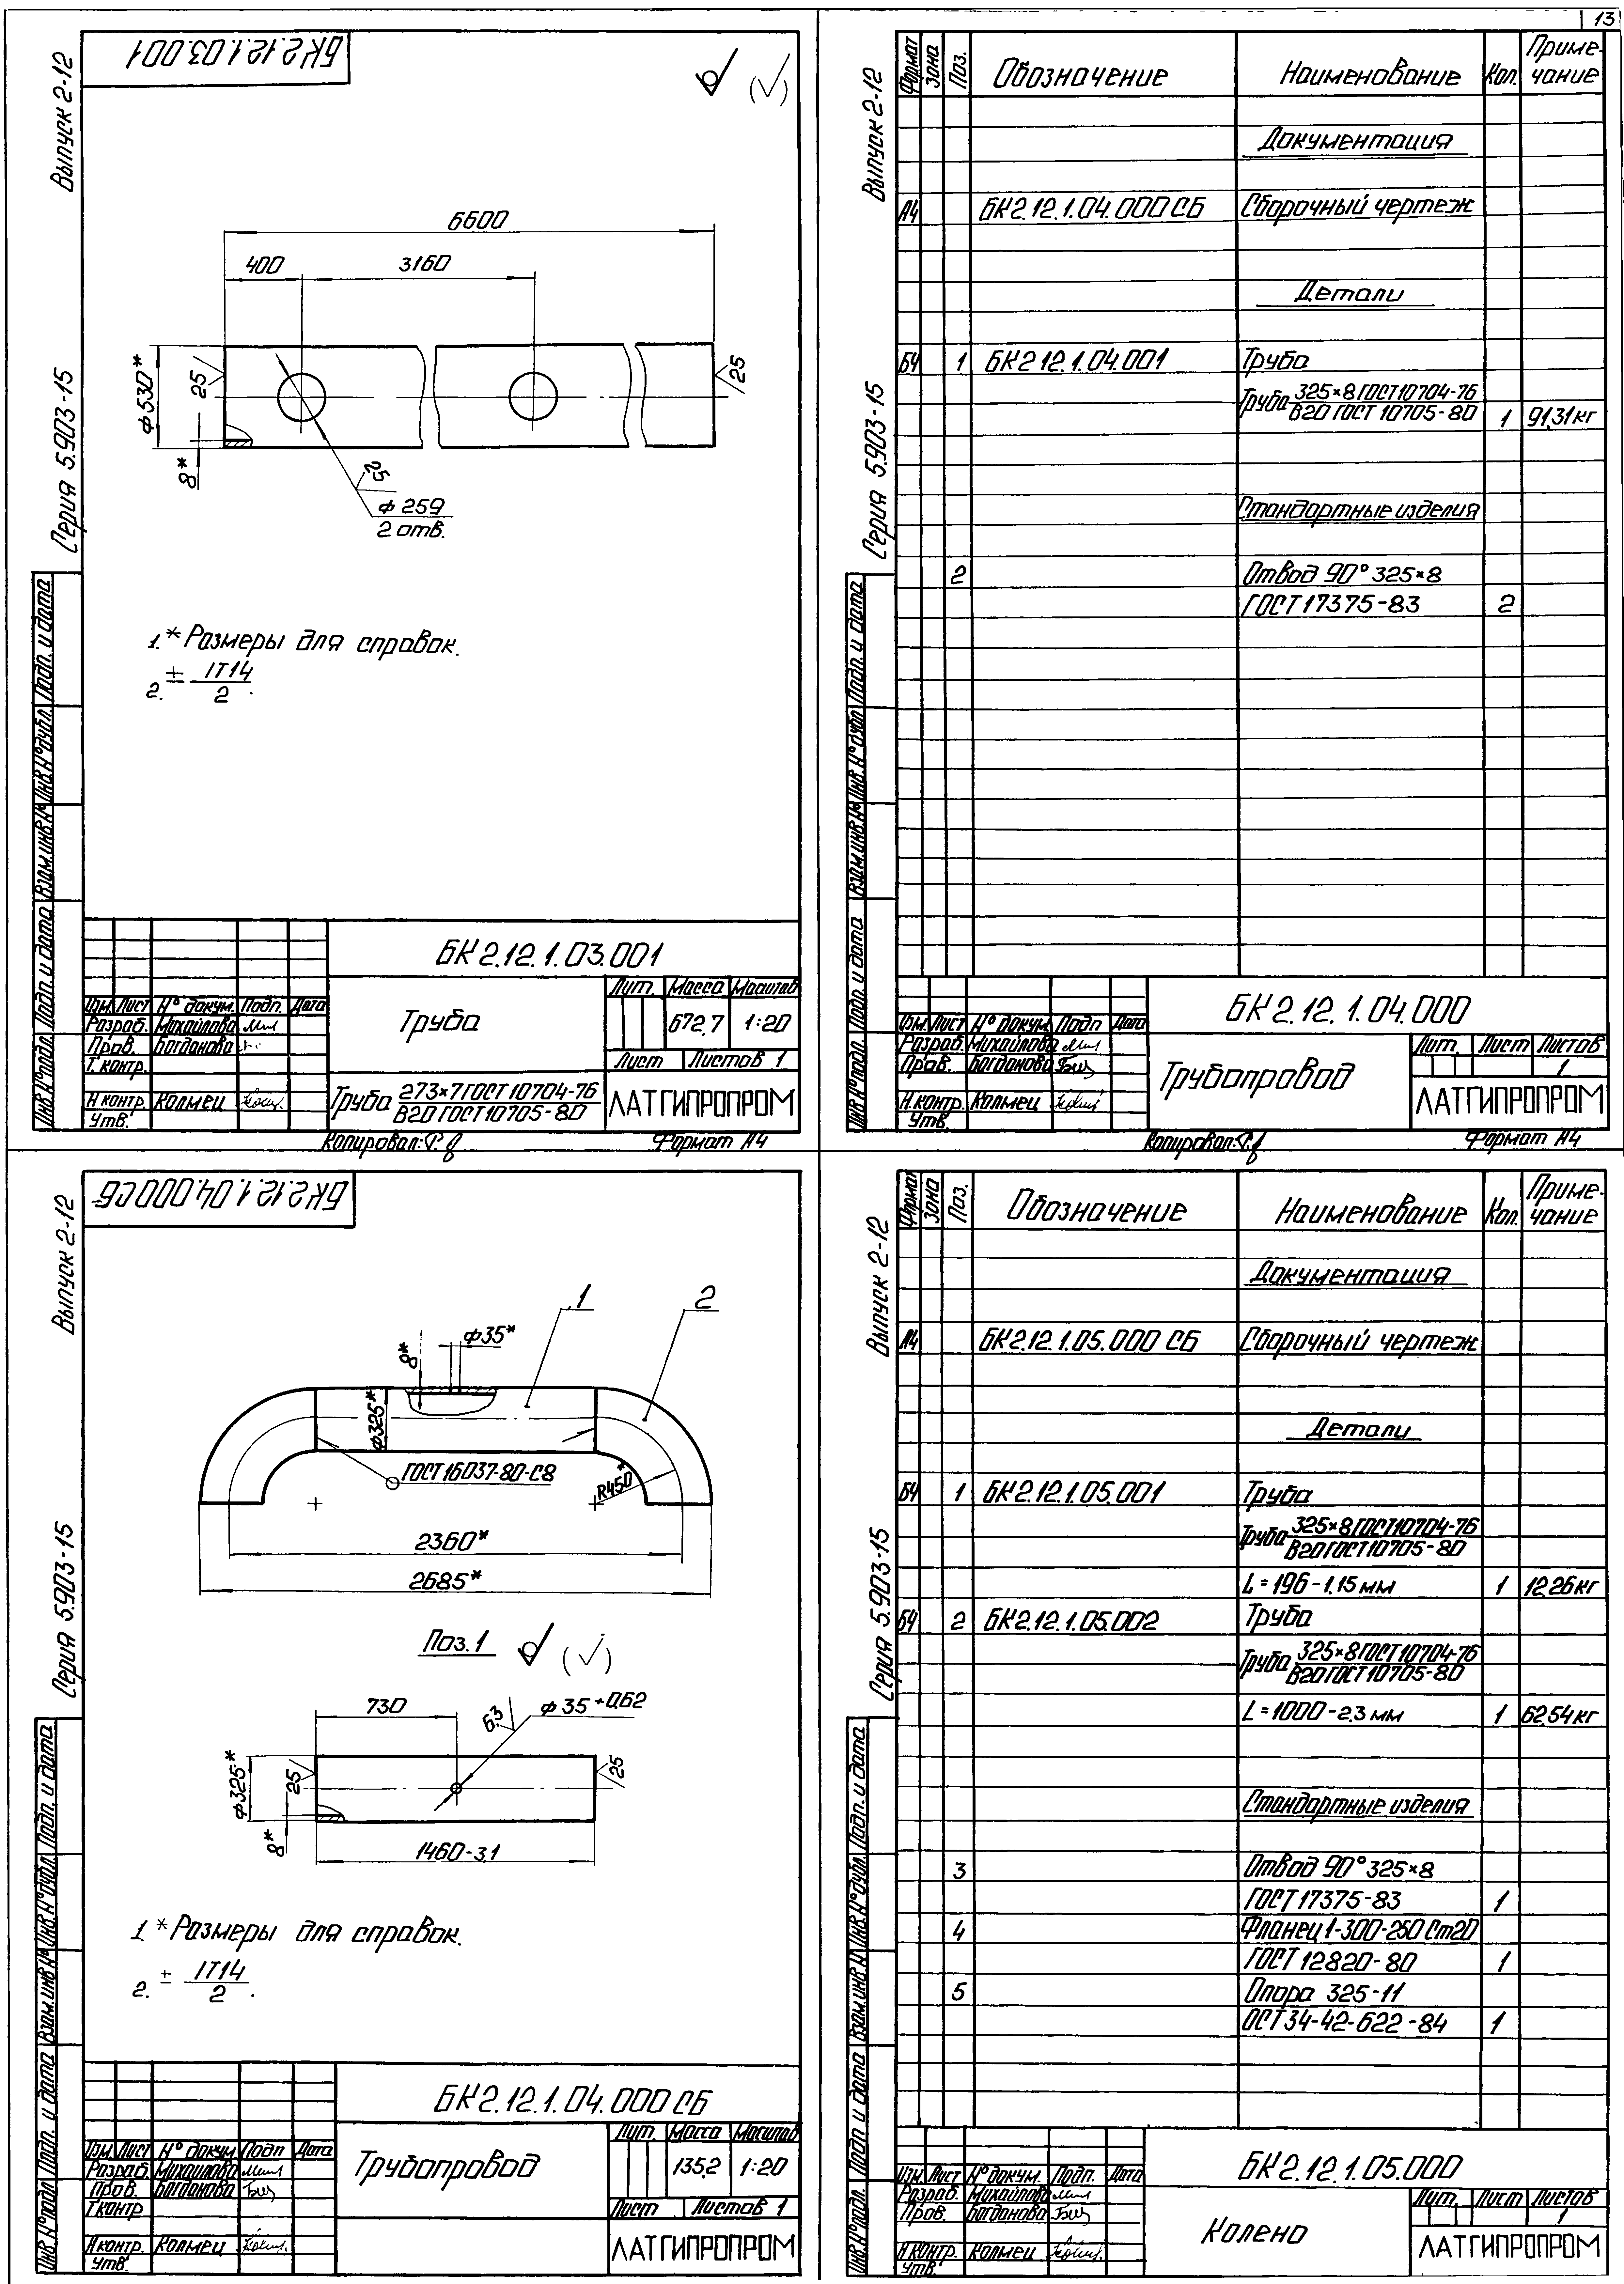 13
БК2.12.1.03.001
Выпуск 2-12
Серия 5.903-15
6600
400
3160
ф530*
25
8*
25
25
ф259
2 отв.
1.* Размеры для справок.
2. ± IT14
2 .
Инв.№подл.
Подп. и дата
Взам.инв.№
Инв.№дубл.
Подп. и дата
БК2.12.1.03.001
Изм. Лист № докум. Подп. Дата
Разраб. Михайлова
Пров. Богданова
Т. контр.
Н контр. Колмец
Утв.
Труба
Лит. Масса Масштаб
672,7 1:20
Лист Листов 1
Труба 273×7 ГОСТ 10704-76
В20 ГОСТ 10705-80
ЛАТГИПРОПРОМ
Копировал:
Формат А4
Выпуск 2-12
Серия 5.903-15
Формат Зона Поз. Обозначение Наименование Кол. Приме-
чание
Документация
А4 БК2.12.1.04.000 СБ Сборочный чертеж
Детали
БЧ 1 БК2.12.1.04.001 Труба
Труба 325×8 ГОСТ 10704-76
В20 ГОСТ 10705-80 1 91,31кг
Стандартные изделия
2 Отвод 90° 325×8
ГОСТ 17375-83 2
Инв.№подл.
Подп. и дата
Взам.инв.№
Инв.№дубл.
Подп. и дата
БК2.12.1.04.000
Изм. Лист № докум. Подп Дата
Разраб. Михайлова
Пров. Богданова
Н.контр. Колмец
Утв.
Трубопровод
Лит. Лист Листов
1
ЛАТГИПРОПРОМ
Копировал:
Формат А4
БК2.12.1.04.000СБ
Выпуск 2-12
Серия 5.903-15
1
2
ф35*
8*
ф325*
ГОСТ 16037-80-С8
R450*
2360*
2685*
Поз. 1
730
6,3
ф35+0,62
ф325*
25
25
8*
1460-3,1
1. * Размеры для справок.
2. ± IT14
2 .
Инв.№подл.
Подп. и дата
Взам.инв.№
Инв.№дубл.
Подп. и дата
БК2.12.1.04.000 СБ
Изм. Лист № докум. Подп Дата
Разраб. Михайлова
Пров. Богданова
Т контр
Н контр. Колмец
Утв.
Трубопровод
Лит. Масса Масштаб
135,2 1:20
Лист Листов 1
ЛАТГИПРОПРОМ
Выпуск 2-12
Серия 5.903-15
Формат Зона Поз. Обозначение Наименование Кол. Приме-
чание
Документация
А4 БК2.12.1.05.000 СБ Сборочный чертеж
Детали
БЧ 1 БК2.12.1.05.001 Труба
Труба 325×8 ГОСТ 10704-76
В20 ГОСТ 10705-80
L=196-1,15 мм 1 12,26кг
БЧ 2 БК2.12.1.05.002 Труба
Труба 325×8 ГОСТ 10704-76
В20 ГОСТ 10705-80
L=1000-2,3 мм 1 62,54кг
Стандартные изделия
3 Отвод 90° 325×8
ГОСТ 17375-83 1
4 Фланец 1-300-250 Ст20
ГОСТ 12820-80 1
5 Опора 325-11
ОСТ 34-42-622-84 1
Инв.№подл.
Подп. и дата
Взам.инв.№
Инв.№дубл.
Подп. и дата
БК2.12.1.05.000
Изм. Лист № докум. Подп. Дата
Разраб. Михайлова
Пров. Богданова
Н контр. Колмец
Утв.
Колено
Лит. Лист Листов
1
ЛАТГИПРОПРОМ